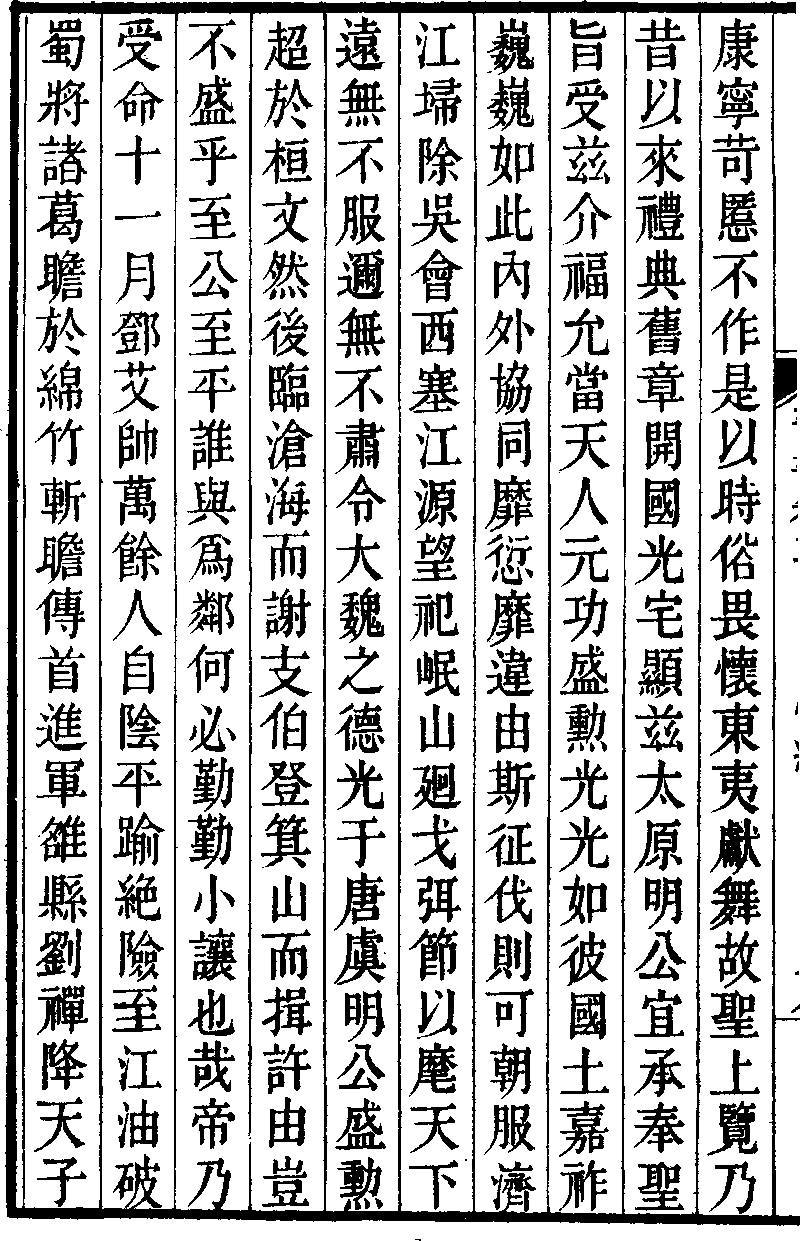 康寧苛慝不作是以時俗畏懷東夷獻舞故聖上覽乃
昔以來禮典舊章開國光宅顯兹太原明公宜承奉聖
旨受兹介福允當天人元功盛勲光光如彼國土嘉祚
巍巍如此內外協同靡愆靡違由斯征伐則可朝服濟
江埽除吳會西塞江源望祀岷山廻戈弭節以麾天下
遠無不服邇無不肅令大魏之德光于唐虞明公盛勲
超於桓文然後臨滄海而謝支伯登箕山而揖許由豈
不盛乎至公至平誰與爲鄰何必勤勤小讓也哉帝乃
受命十一月鄧艾帥萬餘人自陰平踰絶險至江油破
蜀將諸葛瞻於綿竹斬瞻傳首進軍雒縣劉禪降天子